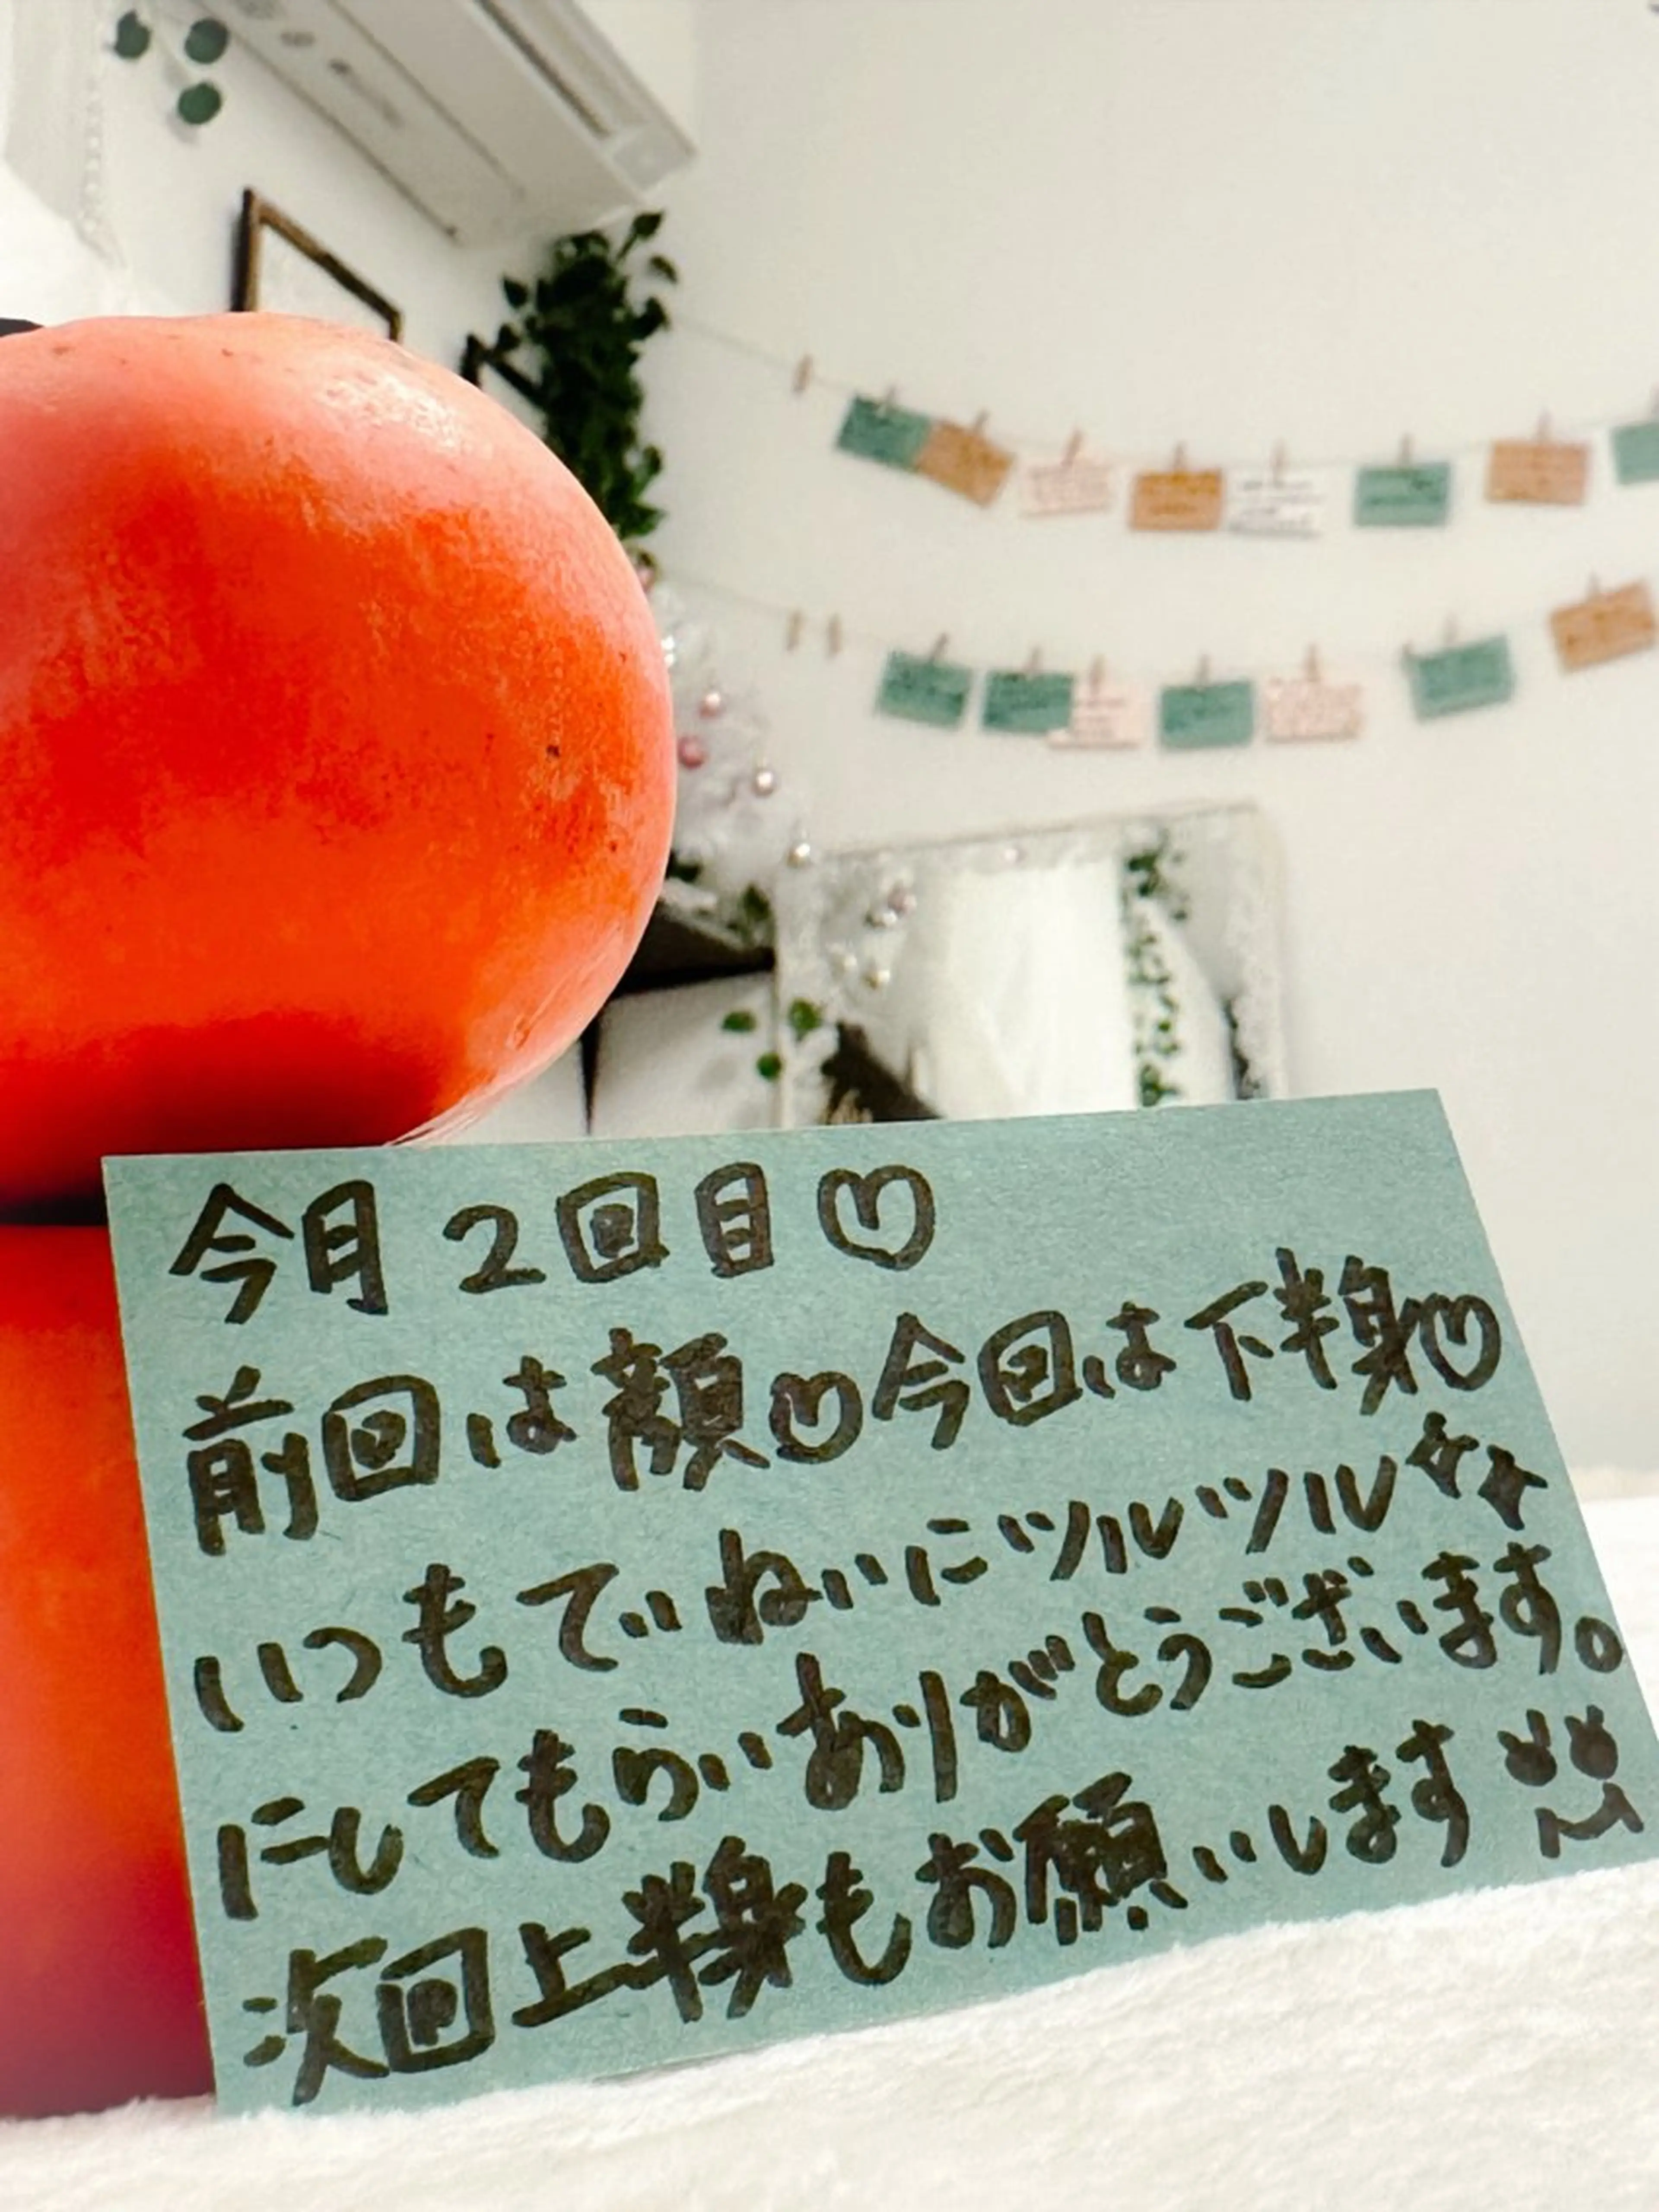 今月2回目♡
前回は顔♡今回は下半身♡
いつもでぃねいにツルツル✨
にしてもらいありがとうございます。
次回上半身もお願いします